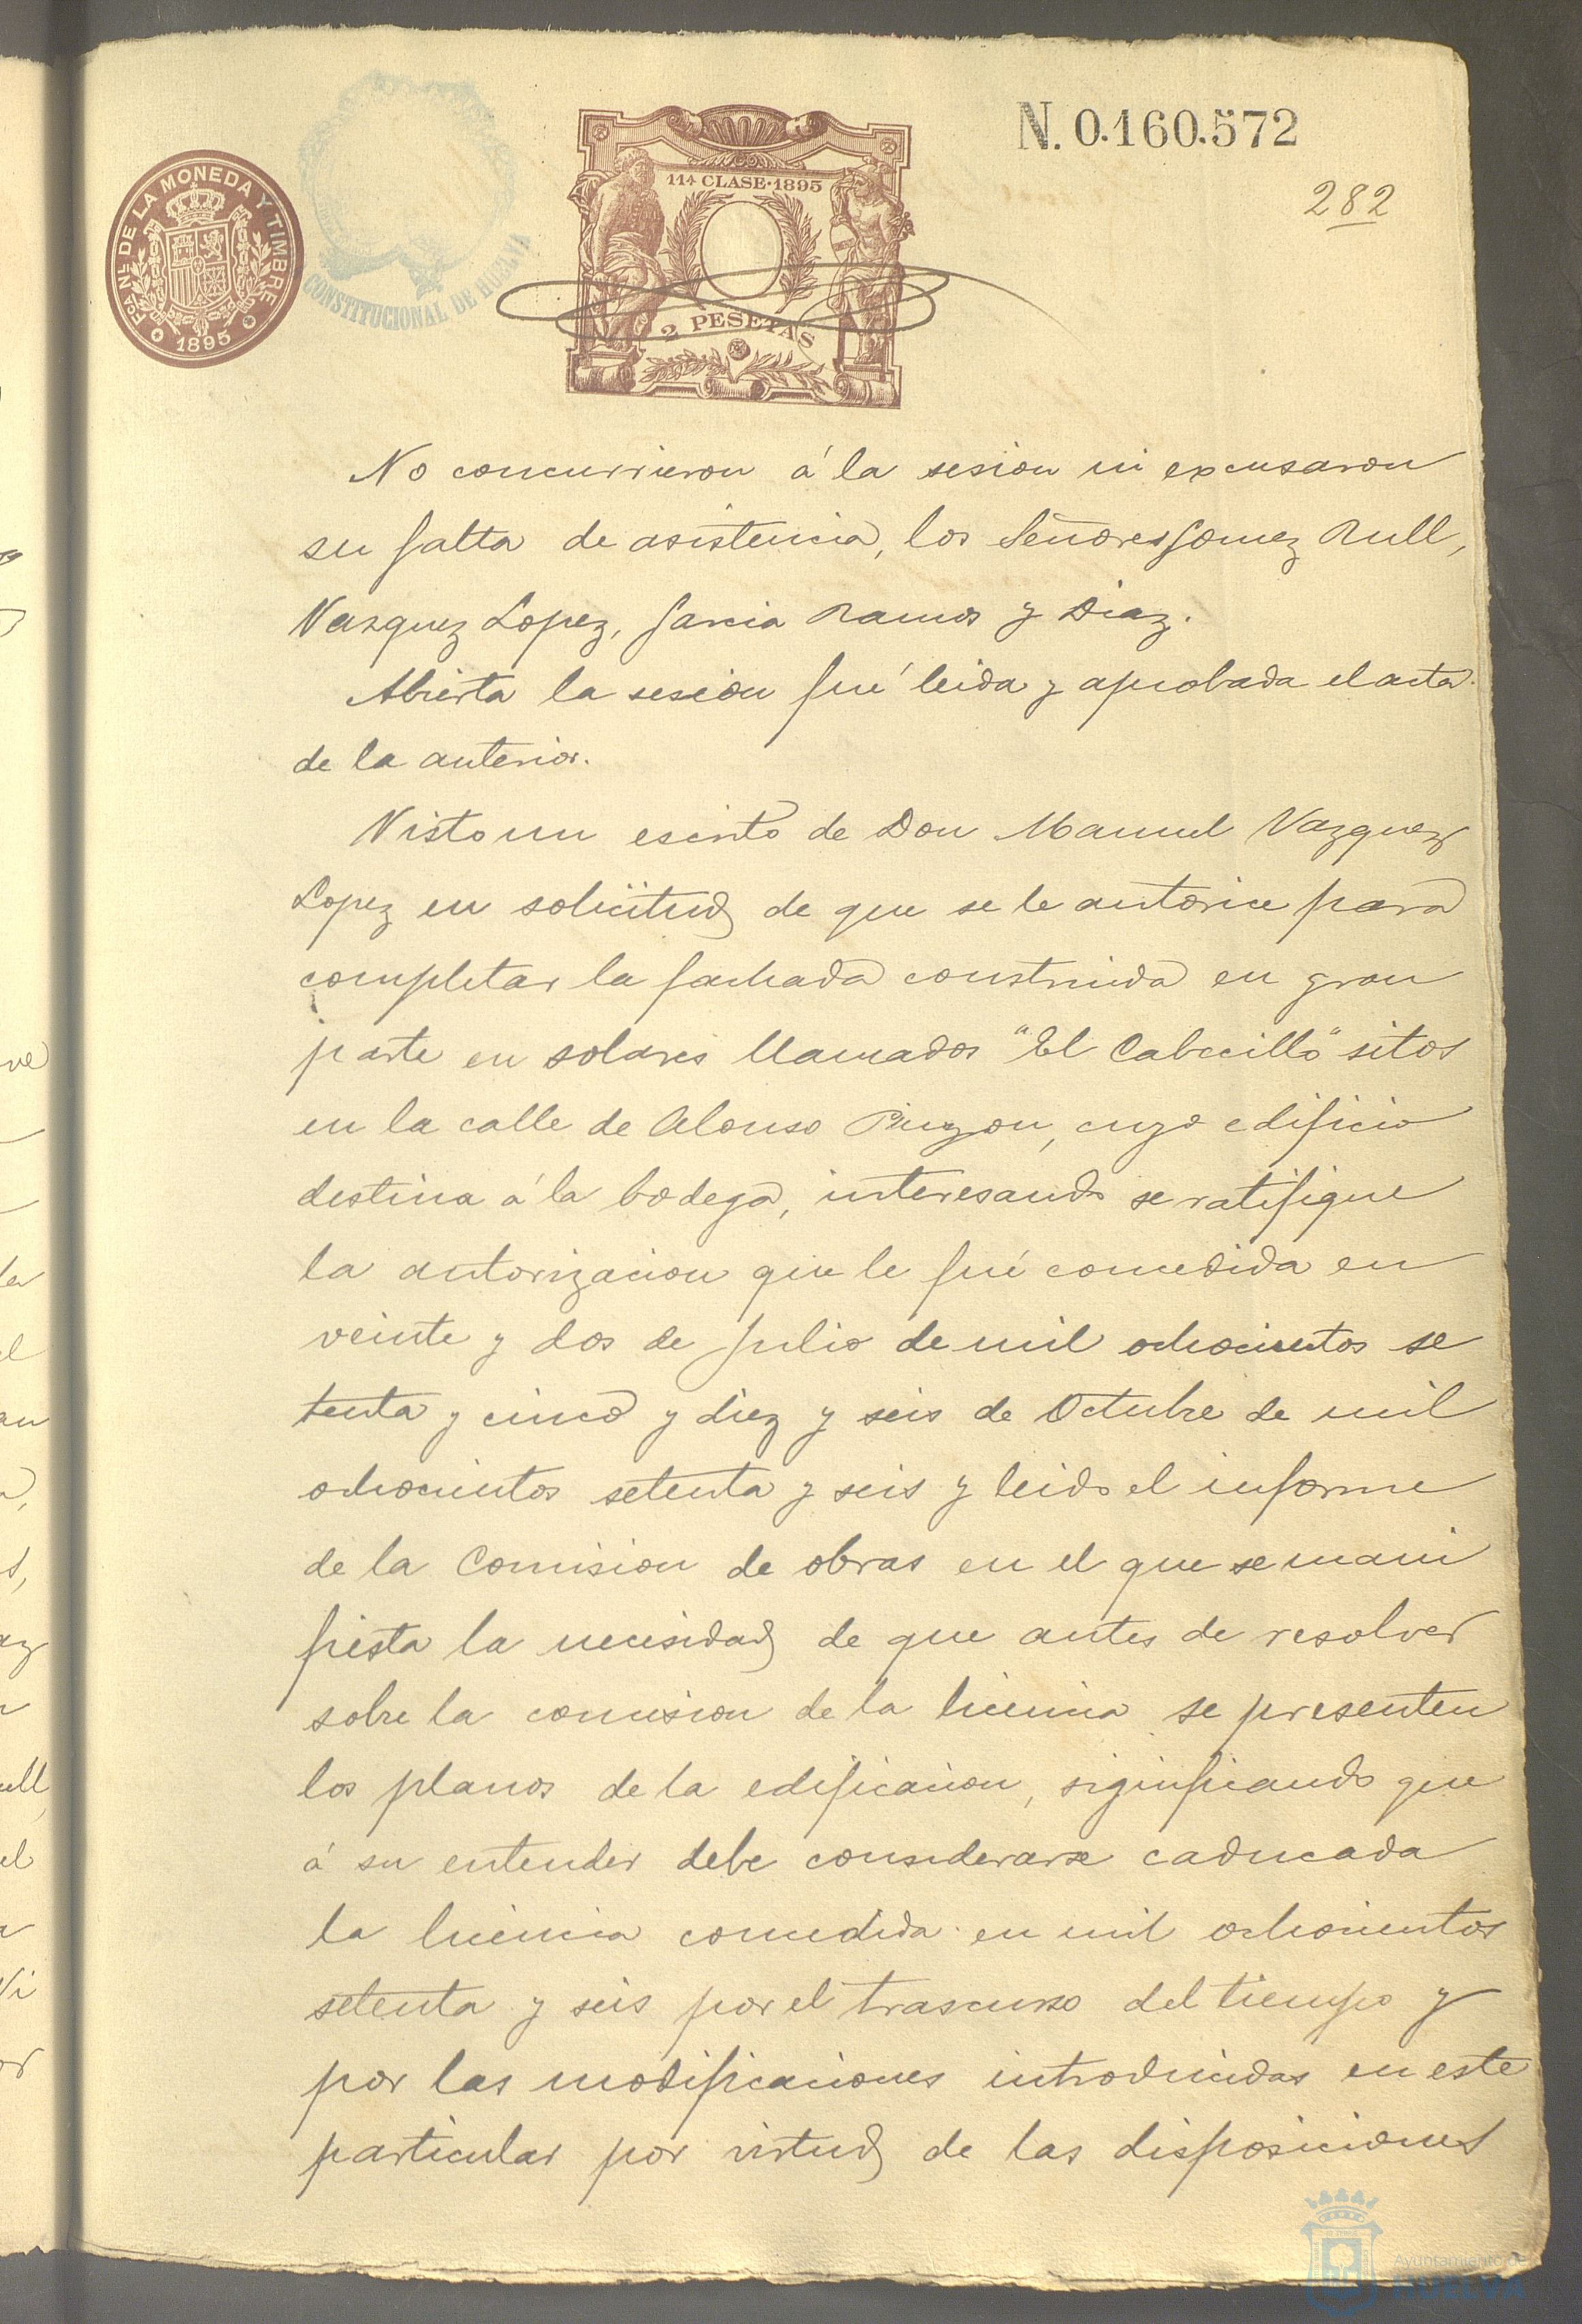 N. 0.160.572
282
FCA NL. DE LA MONEDA Y TIMBRE
1895
CONSTITUCIONAL DE HUELVA
11ª CLASE·1895
2 PESETAS
No concurrieron á la sesion ni excusaron
su falta de asistencia, los Señores Gomez Rull,
Vazquez Lopez, Garcia Ramos y Diaz.
Abierta la sesion fué leida y aprobada el acta
de la anterior.
Visto un escrito de Don Manuel Vazquez
Lopez en solicitud de que se le autorice para
completar la fachada construida en gran
parte en solares llamados "El Cabecillo" sitos
en la calle de Alonso Pinzon, cuyo edificio
destina á la bodega, interesando se ratifique
la autorizacion que le fué concedida en
veinte y dos de Julio de mil ochocientos se
tenta y cinco y diez y seis de Octubre de mil
ochocientos setenta y seis y leido el informe
de la Comision de obras en el que se mani
fiesta la necesidad de que antes de resolver
sobre la concesion de la licencia se presenten
los planos de la edificacion, siginficando que
á su entender debe considerarse caducada
la licencia concedida en mil ochocientos
setenta y seis por el trascurso del tiempo y
por las modificaciones introducidas en este
particular por virtud de las disposiciones
Ayuntamiento de
HUELVA